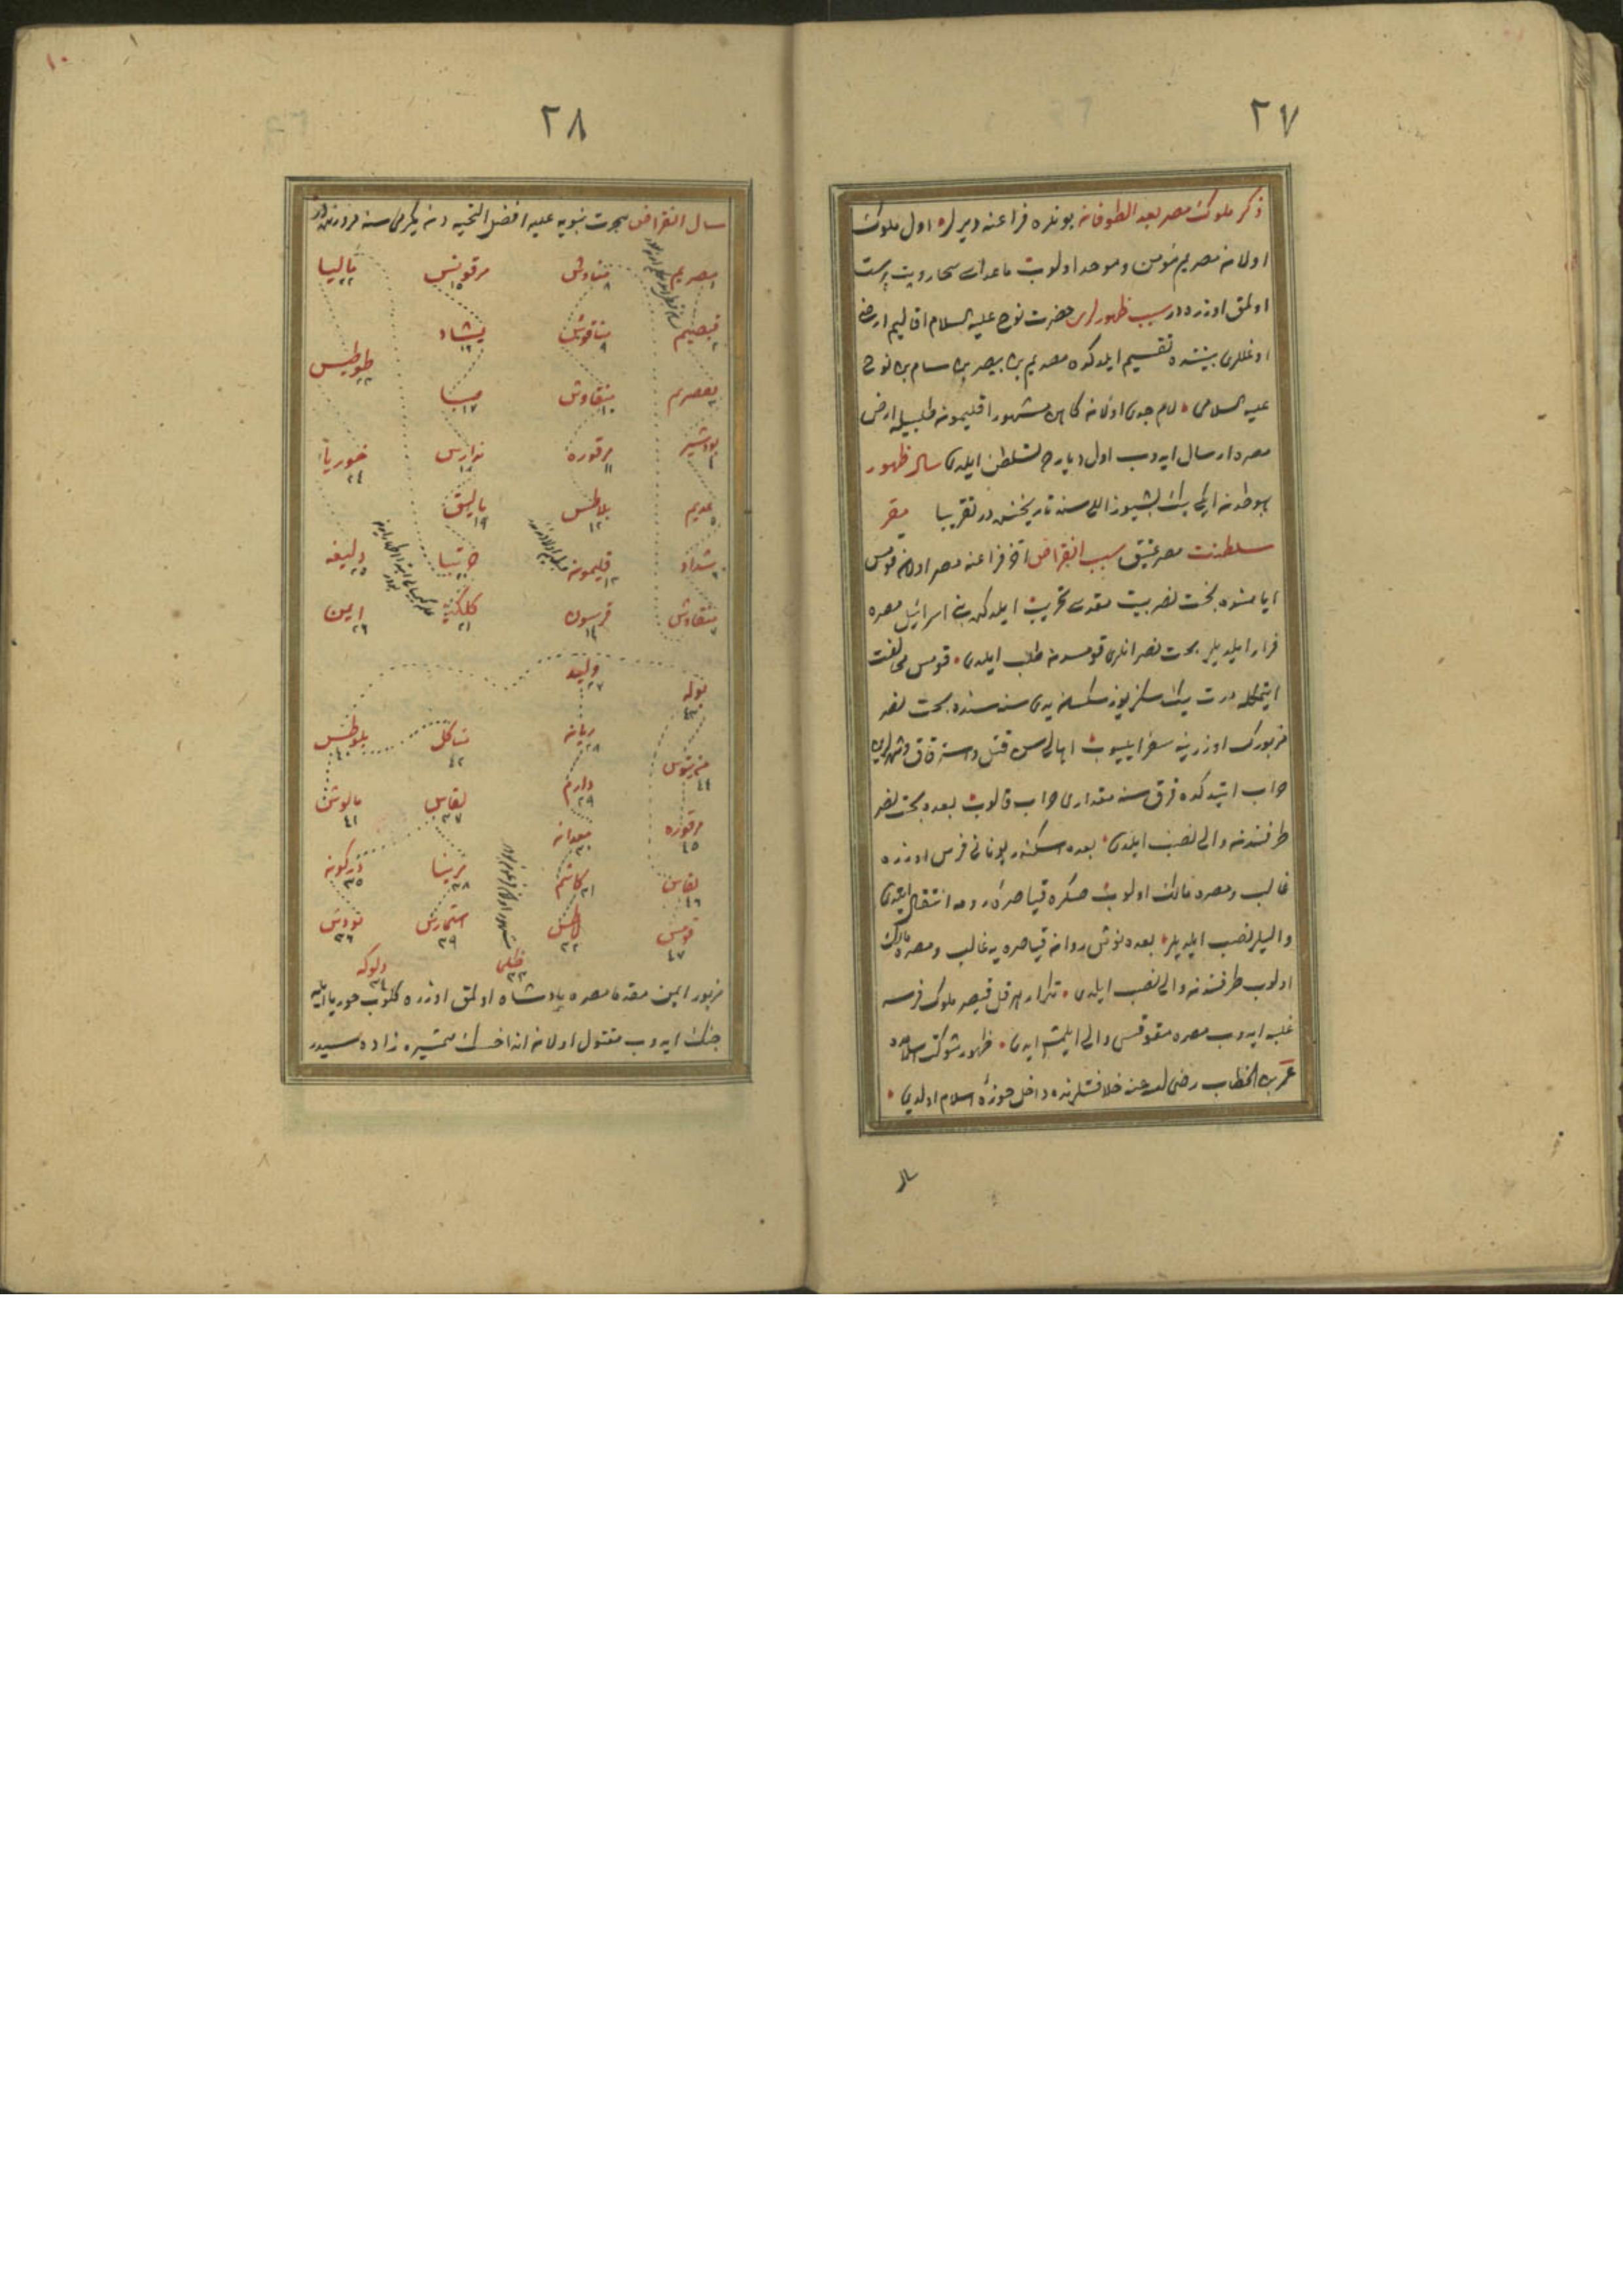 ٢٧
ذكر ملوك مصر بعد الطوفان بونلره فراعنه ديرلر اول ملوك
اولان مصريم مؤمن وموحد اولوب ماعداسى سحار وبت پرست
اولمق اوزره در سبب ظهورلرى حضرت نوح عليه السلام اقاليم ارضى
اوغللرى بيننده تقسيم ايلدكده مصريم بن بيصر بن سام بن نوح
عليه السلامى لام جدى اولان كاهن مشهور اقليمون طلبيله ارض
مصره ارسال ايدوب اول دياره تسلطن ايلدى سال ظهور
هبوطدن ايكى بيك بشيوز اللى سنه تاريخنده در تقريبا مقر
سلطنت مصر عتيق سبب انقراض آخر فراعنه مصر اولان قومس
ايامنده بخت نصر بيت مقدسى تخريب ايلدكده بنى اسرائيل مصره
فرار ايلديلر بخت نصر انلرى قومسدن طلب ايلدى قومس مخالفت
ايتمكله درت بيك سكز يوز سكسان يدى سنه سنده بخت نصر
مزبورك اوزرينه سفر ايليوب اهاليسن قتل واسترقاق وشهرلرين
خراب ايتدكده قرق سنه مقدارى خراب قالوب بعده بخت نصر
طرفندن والى نصب ايلدى بعده اسكندر يونانى فرس اوزره
غالب ومصره مالك اولوب صكره قياصره رومه انتقال ايتدى
واليلر نصب ايلديلر بعده نوش روان قياصره يه غالب ومصره مالك
اولوب طرفندن والى نصب ايلدى تكرار هرقل قيصر ملوك فرسه
غلبه ايدوب مصره مقوقسى والى ايلمش ايدى ظهور شوكت اسلامده
عمر بن الخطاب رضى الله عنه خلافتلرنده داخل حوزۀ اسلام اولدى
سال
٢٨
١٠
سال انقراض هجرت نبويه عليه افضل التحيه دن يكرمى سنه مرورنده در
مصريم ١
قبصيم ٢
بودشير ٤
عديم ٥
شداد ٦
منقاوش ٧
مناوش ٨
مناقوش ٩
منقاوش ١٠
مرقوره ١١
بلاطس ١٢
قليمون ١٣
فرسون ١٤
مرقونس ١٥
يشاد ١٦
صبا ١٧
تدارس ١٨
ماليق ١٩
خربتا ٢٠
كلكن ٢١
ماليا ٢٢
طوطيس ٢٣
خوريا ٢٤
دليفه ٢٥
ايمن ٢٦
وليد ٢٧
ريان ٢٨
دارم ٢٩
معدان ٣٠
كاشم ٣١
لاطس ٣٢
ظلمى ٣٣
دلوكه ٣٤
دركون ٣٥
تودس ٣٦
لقاس ٣٧
مرينا ٣٨
استمارس ٣٩
بلوطس ٤٠
مالوش ٤١
مناكل ٤٢
بوله ٤٣
مرينوس ٤٤
مرقوره ٤٥
لقاس ٤٦
قومس ٤٧
مزبور ايمن مقدما مصره پادشاه اولمق اوزره كلوب حوريا ايله
جنك ايدوب مقتول اولان انداخسك همشيره زاده سيدر